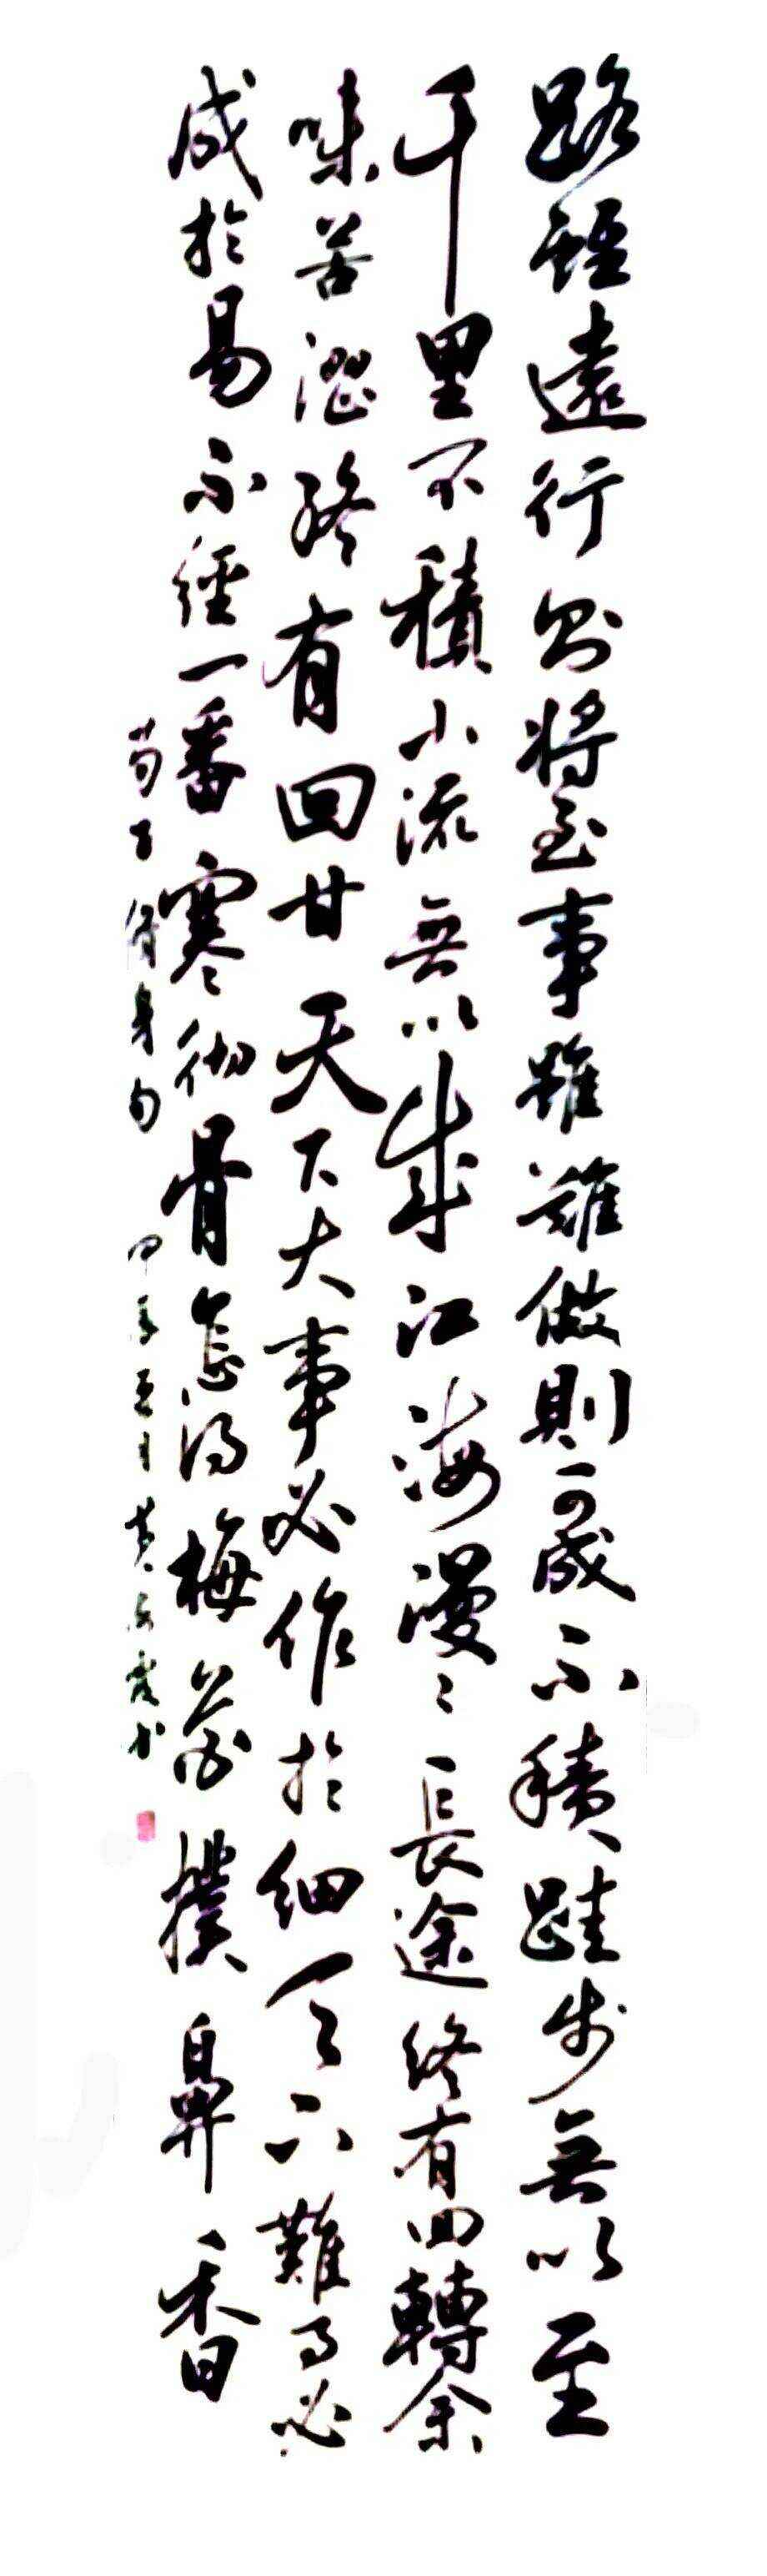 路雖遠行則將至事雖難做則可成不積跬步無以至
千里不積小流無以成江海漫々長途終有回轉余
味苦澀終有回甘天下大事必作於細天下難事必
成於易不經一番寒徹骨怎得梅花撲鼻香
荀子修身句 甲辰五月黃